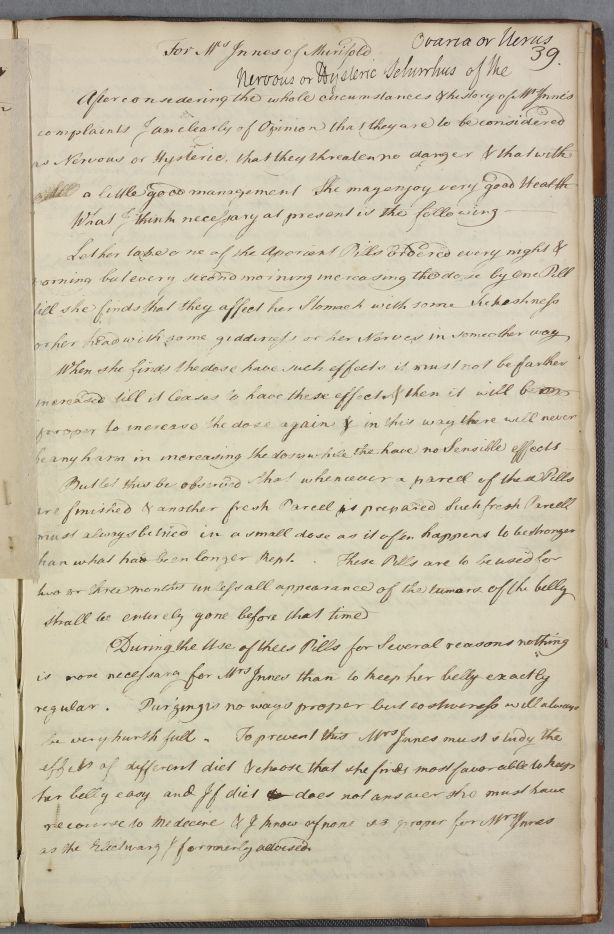 For Mrs Innes of Murifold
Ovaria or Uterus
39.
Nervous or Hysteric Schirrhus of the
After considering the whole circumstances & history of Mrs Innis
complaints I am clearly of Opinion that they are to be considered
as Nervous or Hysteric, that they threaten no danger & that with
a little good management She may enjoy very good Health
What I think necessary at present is the following
Let her take one of the Aporient Pills ordered every night &
morning but every second morning increasing the dose by one Pill
till she finds that they affect her Stomach with some Sickishness
or her head with some giddiness or her Nerves in some other way
When she finds the dose have such effects it must not be farther
increased till it ceases to have these effects & then it will be
proper to increase the dose again & in this way there will never
be any harm in increasing the dose while the have no Sensible effects
But let this be observed that whenever a parcel of these Pills
are finished & another fresh Parcel is prepared Such fresh Parcell
must always be tried in a small dose as it ofen happens to be stronger
than what had been longer kept. These Pills are to be used for
two or three months unless all appearance of the tumors of the belly
shall be entirely gone before that time
During the Use of thees Pills for Several reasons nothing
is more necessary for Mrs Innes than to keep her belly exactly
regular. Purging is no ways proper but costiveness will always
be very hurth full. To prevent this Mrs Innes must study the
effects of different diet & choose that she finds most favorable to keep
her belly easy and If diet does not answer she must have
recourse to Medecene & I know of none so proper for Mrs Innes
as the Electuary I formerly advised